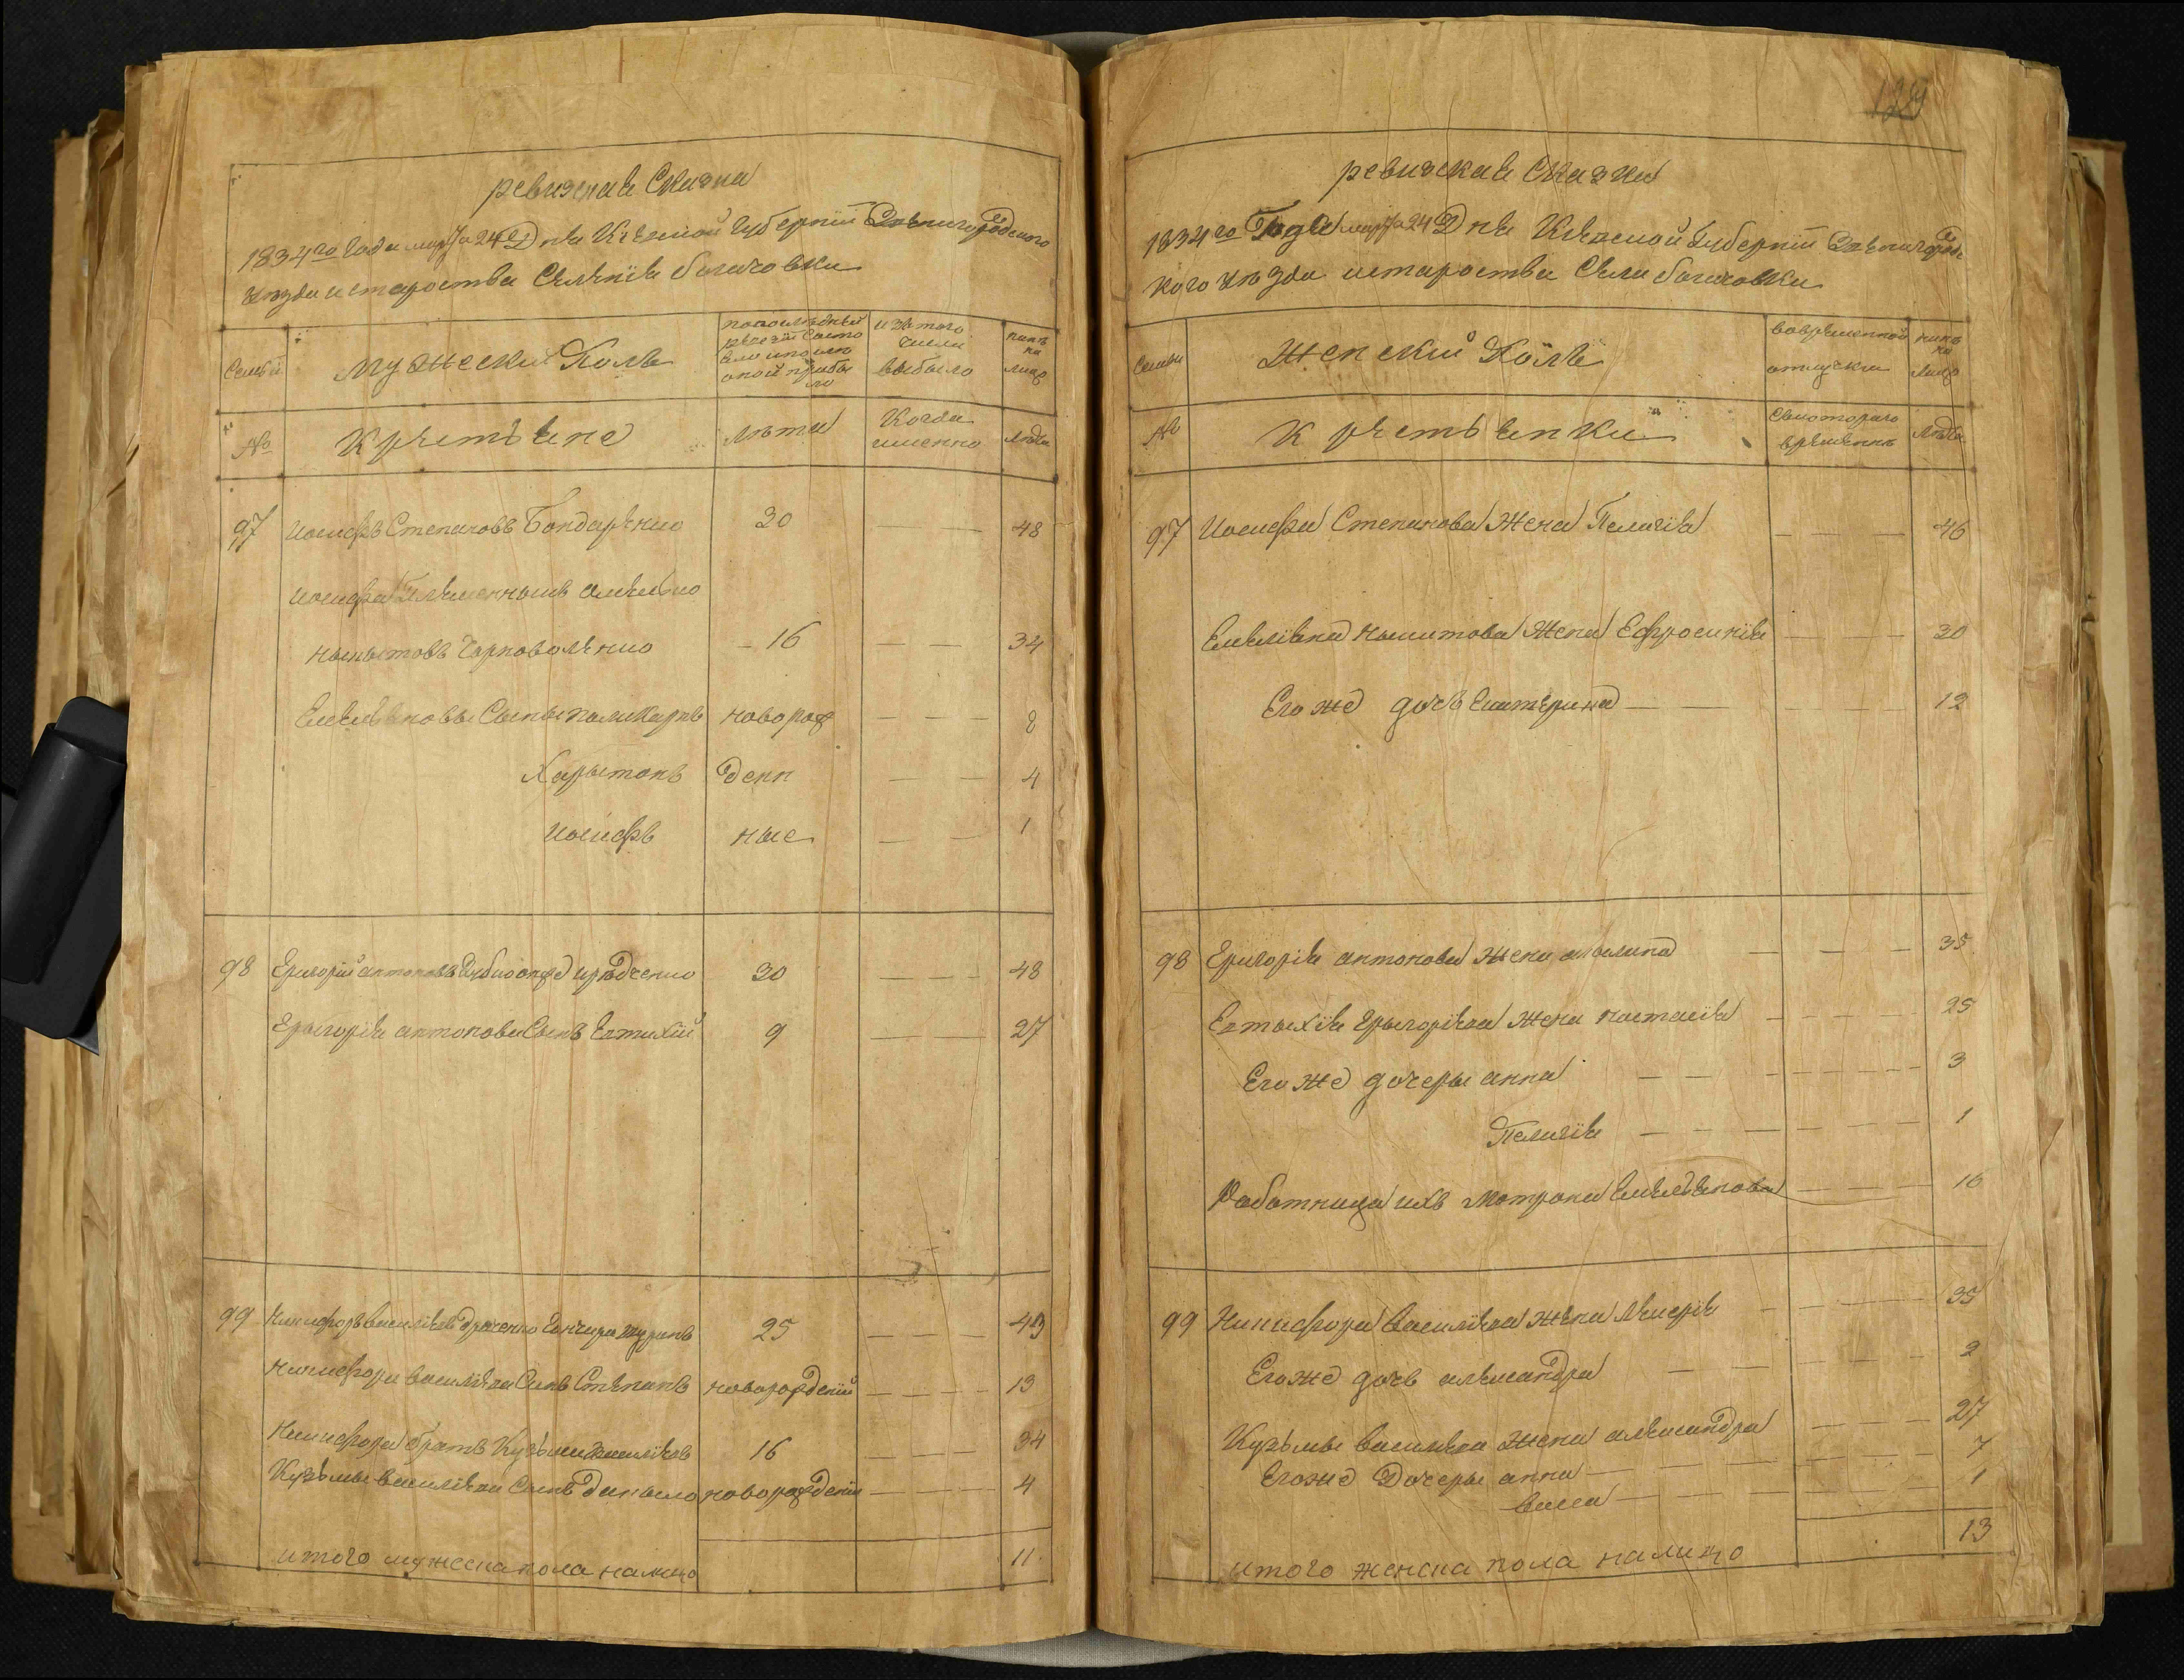 ревизская Сказка
1834го Года марта 24 Дня Киевской Губернии Звенигородского
уезда и староства Селения богачовки
Семьи
мужеский Полъ
попоследней
ревизии состо
яло и после
оной прибы
ло
изъ того
числа
выбыло
ныне
на
лицо
№
Крестьяне
Лѣта
Когда
именно
лѣта
97 Иосифъ Степановъ Бондаренко 30 — — 48
Иосифа Племенникъ омелько
никитовъ Чорноволенко - 16 — — 34
Емельяновы Сыны поликарпъ новорож — — — 8
Харытонъ денн — — 4
Иосифъ ные — — 1
98 Григорий антоновъ 30 — — — 48
Григория антонова Сынъ Евтихий 9 — — — 27
99 Никифоръ василиевъ 25 — — — 43
Никифора василиева Сынъ Степанъ новорожденный — — — 13
Никифора братъ Кузьма василиевъ 16 — — — 34
Кузьмы василиева Сынъ Даныло новорожденный — — — 4
итого мужеска пола налицо 11
129
ревизская Сказка
1834го Года марта 24 Дня Киевской Губернии Звенигородс
кого уезда и староства Села богачовки
Семьи
Женский Полъ
вовременной
отлучки
ныне
на
лицо
№
Крестьянки
Скоторого
времени
Лѣта
97 Иосифа Степанова Жена Пелагия — — — 46
Емелияна никитова Жена Ефросиния — — — 30
Его же дочь Екатерина — — — 12
98 Григория антонова жена акилина — — — 35
Евтыхия Григориева жена настасия — — — 25
Его же дочеры анна — — — 3
Пелагия — — — 1
Работница ихъ Мотрона Емельянова — — — 16
99 Никифора василиева жена Лукерия — — — 35
Его же дочь александра — — — 2
Кузьмы василиева жена александра — — — 27
Его же Дочеры анна — — — 7
васса — — — 1
итого женска пола налицо 13